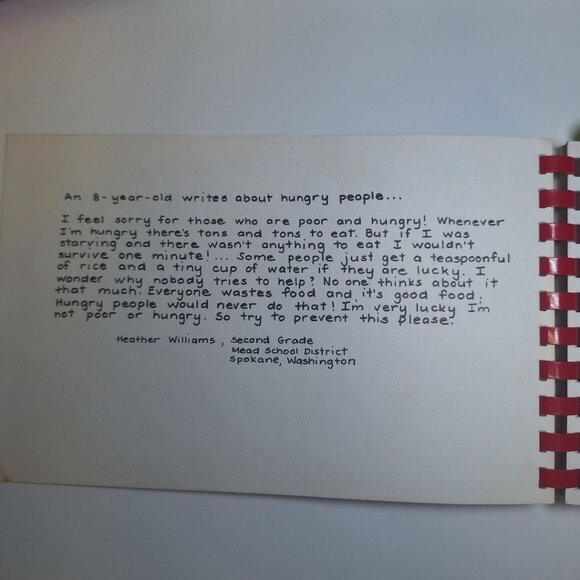 An 8-year-old writes about hungry people...
I feel sorry for those who are poor and hungry! Whenever
I'm hungry there's tons and tons to eat. But if I was
starving and there wasn't anything to eat I wouldn't
survive one minute!... Some people just get a teaspoonful
of rice and a tiny cup of water if they are lucky. I
wonder why nobody tries to help? No one thinks about it
that much. Everyone wastes food and it's good food.
Hungry people would never do that! I'm very lucky I'm
not poor or hungry. So try to prevent this please.
Heather Williams, Second Grade
Mead School District
Spokane, Washington